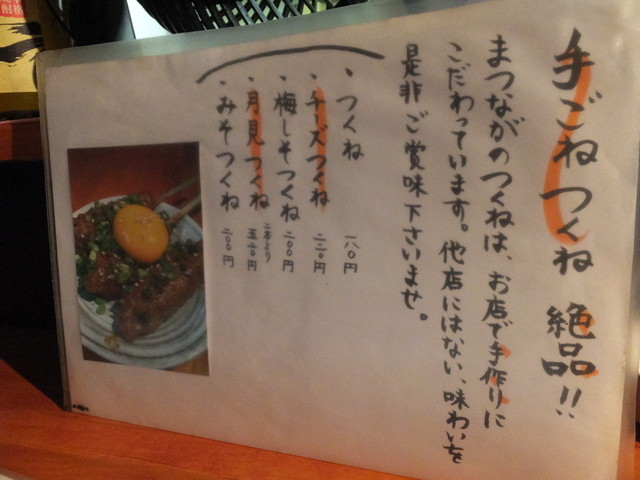 手ごねつくね 絶品!!
まつながのつくねは、お店で手作りに
こだわっています。他店にはない、味わいを
是非ご賞味下さいませ。
・つくね 一八〇円
・チーズつくね 二二〇円
・梅しそつくね 二〇〇円
・月見つくね 二本より 五二〇円
・みそつくね 二〇〇円